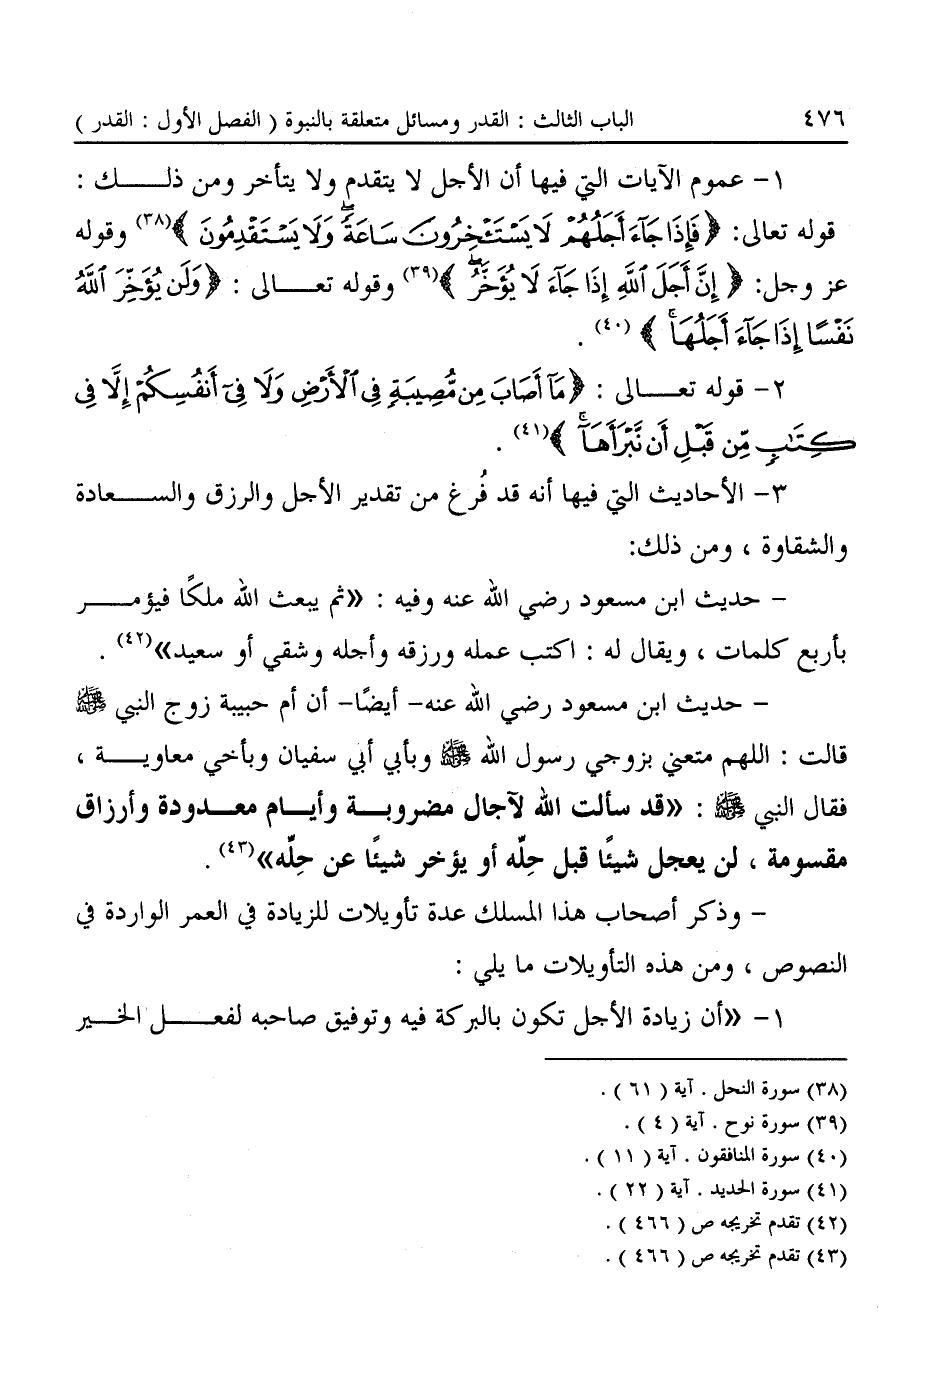 ٤٧٦ الباب الثالث : القدر ومسائل متعلقة بالنبوة ( الفصل الأول : القدر )
١- عموم الآيات التي فيها أن الأجل لا يتقدم ولا يتأخر ومن ذلك :
قوله تعالى: ﴿ فَإِذَا جَآءَ أَجَلُهُمْ لَا يَسْتَـْٔخِرُونَ سَاعَةً ۖ وَلَا يَسْتَقْدِمُونَ ﴾(٣٨) وقوله
عز وجل: ﴿ إِنَّ أَجَلَ ٱللَّهِ إِذَا جَآءَ لَا يُؤَخَّرُ ۖ ﴾(٣٩) وقوله تعالى : ﴿ وَلَن يُؤَخِّرَ ٱللَّهُ
نَفْسًا إِذَا جَآءَ أَجَلُهَا ۚ ﴾ (٤٠) .
٢- قوله تعالى : ﴿ مَآ أَصَابَ مِن مُّصِيبَةٍ فِى ٱلْأَرْضِ وَلَا فِىٓ أَنفُسِكُمْ إِلَّا فِى
كِتَـٰبٍ مِّن قَبْلِ أَن نَّبْرَأَهَآ ۚ ﴾(٤١) .
٣- الأحاديث التي فيها أنه قد فُرغ من تقدير الأجل والرزق والسعادة
والشقاوة ، ومن ذلك:
– حديث ابن مسعود رضي الله عنه وفيه : «ثم يبعث الله ملكًا فيؤمر
بأربع كلمات ، ويقال له : اكتب عمله ورزقه وأجله وشقي أو سعيد»(٤٢) .
– حديث ابن مسعود رضي الله عنه- أيضًا- أن أم حبيبة زوج النبي ﷺ
قالت : اللهم متعني بزوجي رسول الله ﷺ وبأبي أبي سفيان وبأخي معاوية ،
فقال النبي ﷺ : «قد سألت الله لآجال مضروبة وأيام معدودة وأرزاق
مقسومة ، لن يعجل شيئًا قبل حِلّه أو يؤخر شيئًا عن حِلّه»(٤٣) .
– وذكر أصحاب هذا المسلك عدة تأويلات للزيادة في العمر الواردة في
النصوص ، ومن هذه التأويلات ما يلي :
١- «أن زيادة الأجل تكون بالبركة فيه وتوفيق صاحبه لفعل الخير
(٣٨) سورة النحل . آية ( ٦١ ) .
(٣٩) سورة نوح . آية ( ٤ ) .
(٤٠) سورة المنافقون . آية ( ١١ ) .
(٤١) سورة الحديد . آية ( ٢٢ ) .
(٤٢) تقدم تخريجه ص ( ٤٦٦ ) .
(٤٣) تقدم تخريجه ص ( ٤٦٦ ) .